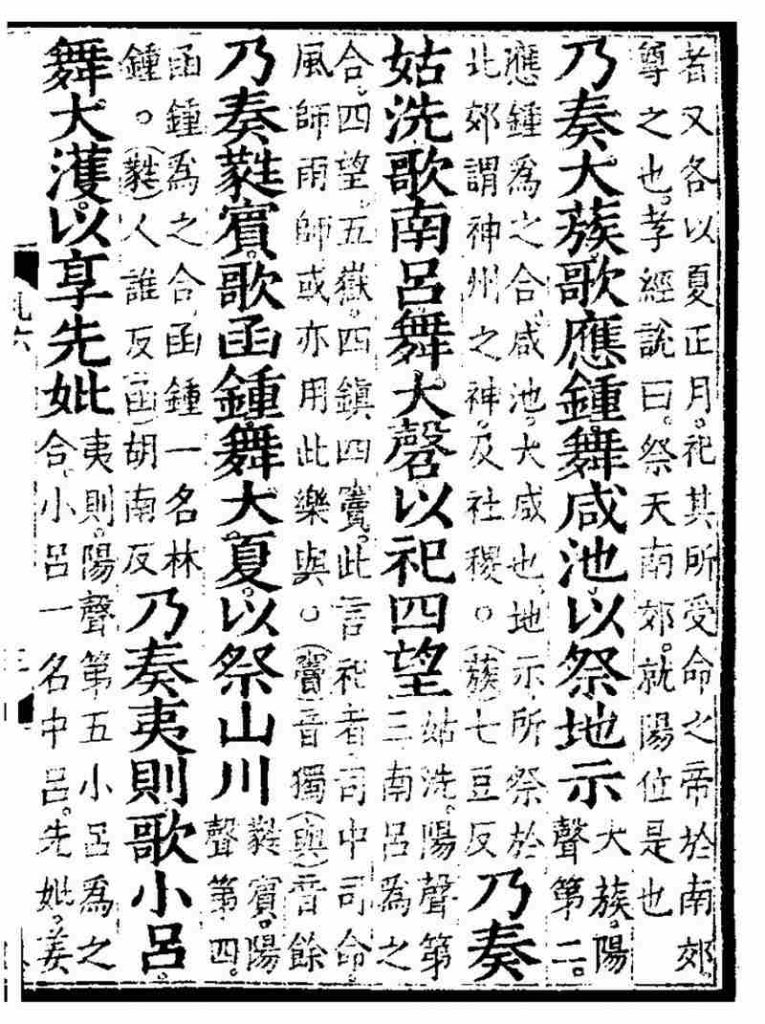 者又各以夏正月。祀其所受命之帝於南郊。
尊之也。孝經說曰。祭天南郊。就陽位是也
乃奏大蔟。歌應鍾。舞咸池。以祭地示
大蔟。陽
聲第二。
應鍾爲之合。咸池。大咸也。地示所祭於
北郊。謂神州之神。及社稷。○(蔟)七豆反
乃奏
姑洗歌南呂舞大磬以祀四望
姑洗。陽聲第
三南呂爲之
合。四望。五嶽。四鎮四竇。此言祀者司中司命。
風師雨師或亦用此樂與。○(竇)音獨(與)音餘
乃奏蕤賓。歌函鍾。舞大夏。以祭山川
蕤賓。陽
聲第四。
函鍾爲之合。函鍾一名林
鍾。○(蕤)人誰反(函)胡南反
乃奏夷則歌小呂。
舞大濩。以享先妣
夷則。陽聲第五小呂爲之
合。小呂一名中呂。先妣。姜